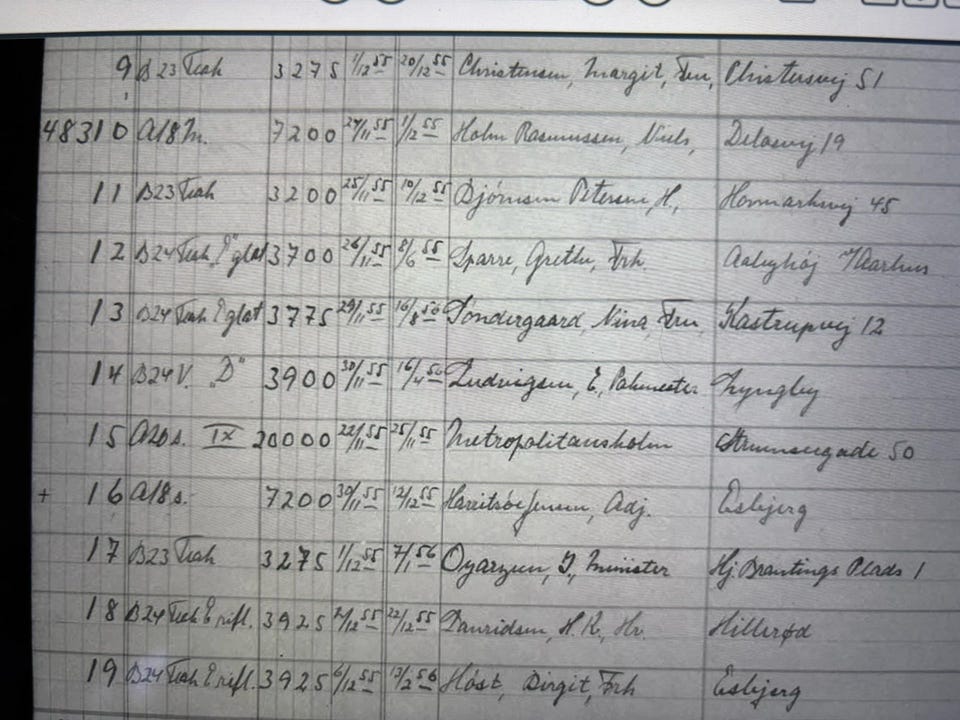 9 B23 Teak 3275 1/12 55 20/12 55 Christensen, Margit, Fru, Christensvej 51
48310 A18 M. 7200 24/11 55 1/12 55 Holm Rasmussen, Niels, Delosvej 19
11 B23 Teak 3200 25/11 55 10/12 55 Bjórnsen Petersen, H., 45
12 B24 Teak "E" glat 3700 26/11 55 8/6 55 Sparre, Grethe, Frk. Aabyhøj v/Aarhus
13 B24 Teak E glat 3775 29/11 55 16/8 56 Søndergaard, Nina, Fru, Kastrupvej 12
14 B24 V. "D" 3900 30/11 55 16/4 56 Ludvigsen, E, Lyngby
15 A20 s. IX 20000 22/11 55 25/11 55 Metropolitanskolen Struenseegade 50
+ 16 A18 s. 7200 30/11 55 12/12 55 Adj. Esbjerg
17 B23 Teak 3275 1/12 55 7/1 56 Oyarzun, Minister Hj. Brantings Plads 1
18 B24 Teak E rifl. 3925 2/12 55 22/12 55 Davridsen, H.R., Hr. Hillerød
19 B24 Teak E rifl. 3925 6/12 55 13/2 56 Høst, Birgit, Frk Esbjerg